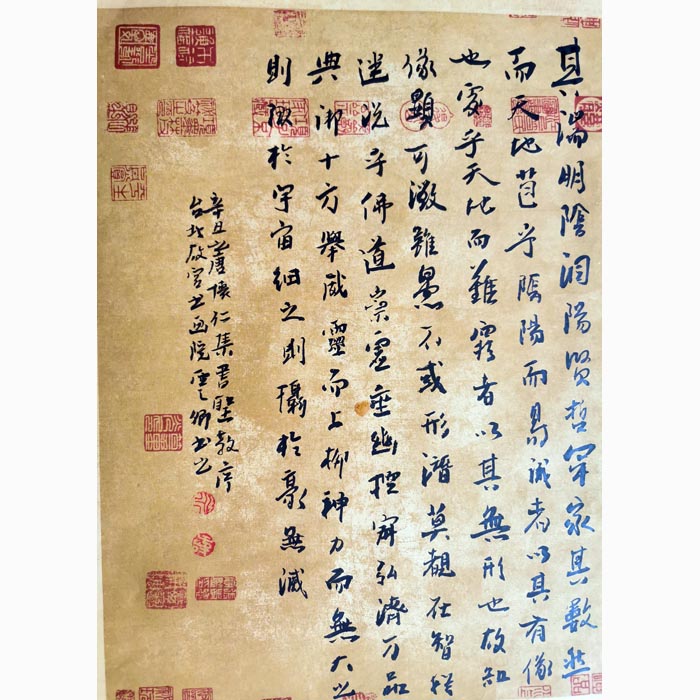 其端明陰洞陽賢哲罕窮其數然
而天地苞乎陰陽而易識者以其有像
也處乎天地而難窮者以其無形也故知
像顯可徵雖愚不惑形潛莫覩在智猶
迷況乎佛道崇虛乘幽控寂弘濟万品
典御十方舉威靈而上抑神力而無大之
則彌於宇宙細之則攝於豪無滅
辛丑懷仁集書聖教序
台北故宮书画院雲卿书